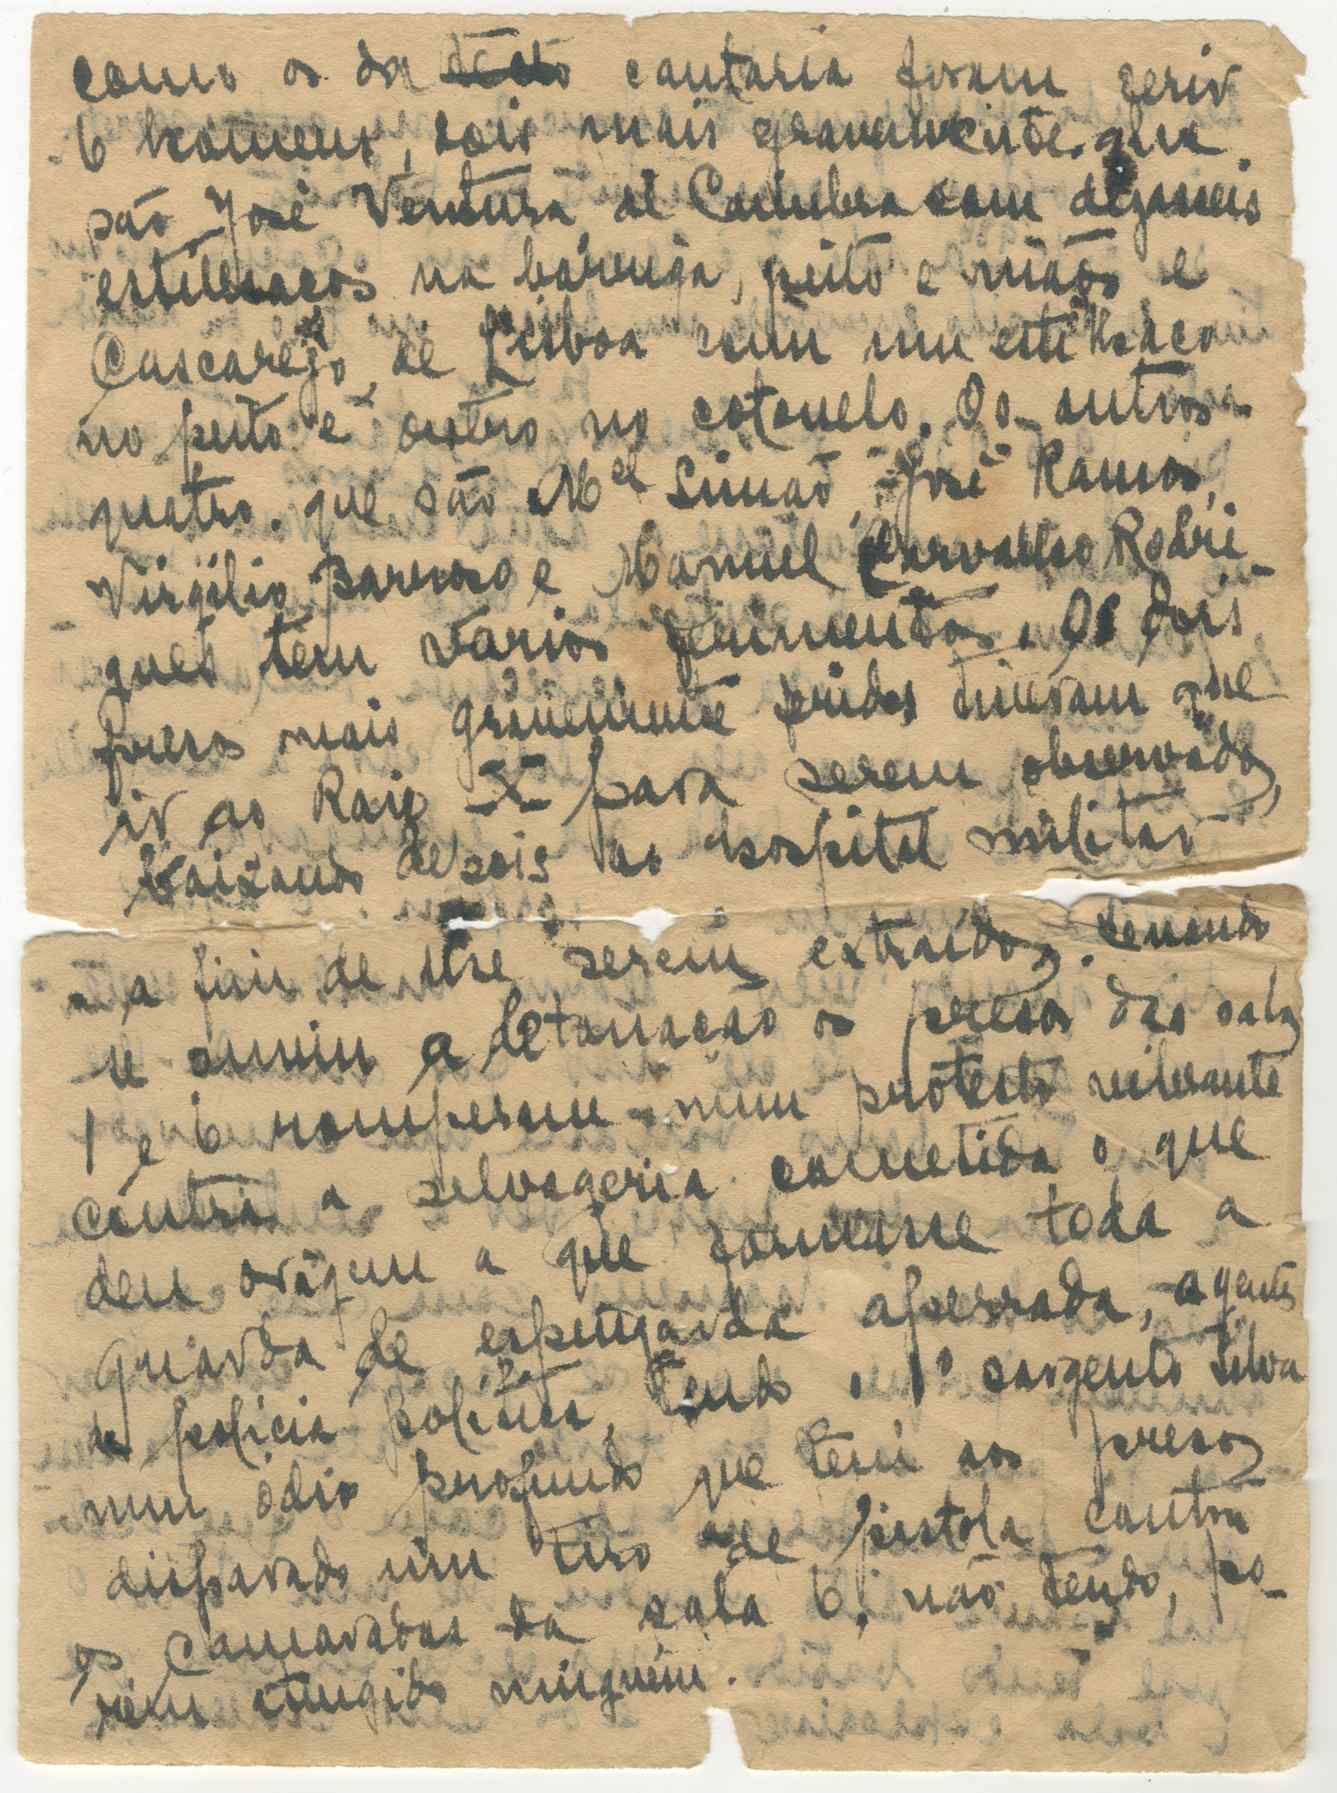 como os da cantaria foram ferir
6 homens, dois mais gravemente que
são José Ventura, de Coimbra com dezasseis
estilhaços na barriga, peito e mãos e
Cascarejo, de Lisboa com um estilhaço
no peito e outro no cotovelo. Os outros
quatro. que são Mel Simão, José Ramos,
Virgílio Barroso e Manuel Carvalho Rodri-
gues tem varios ferimentos. Os dois
presos mais gravemente feridos tiveram que
ir ao Raio X para serem observados,
baixando depois ao hospital militar
a fim de lhe serem extraídos.
a detonação os presos das salas
1 e 6 romperam num protesto vibrante
contra a selvageria cometida o que
deu origem a que formasse toda a
guarda de espingarda aperrada, agentes
da policia politica, tendo o 1º sargento Silva
num ódio profundo que tem aos presos
disparado um tiro de pistola contra
os camaradas da sala 6, não tendo, po-
rém atingido ninguém.